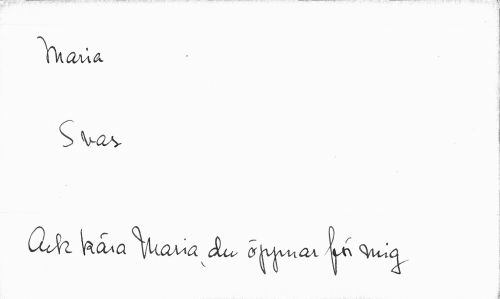 Maria
Svar
Ack kära Maria, du öppnar för mig